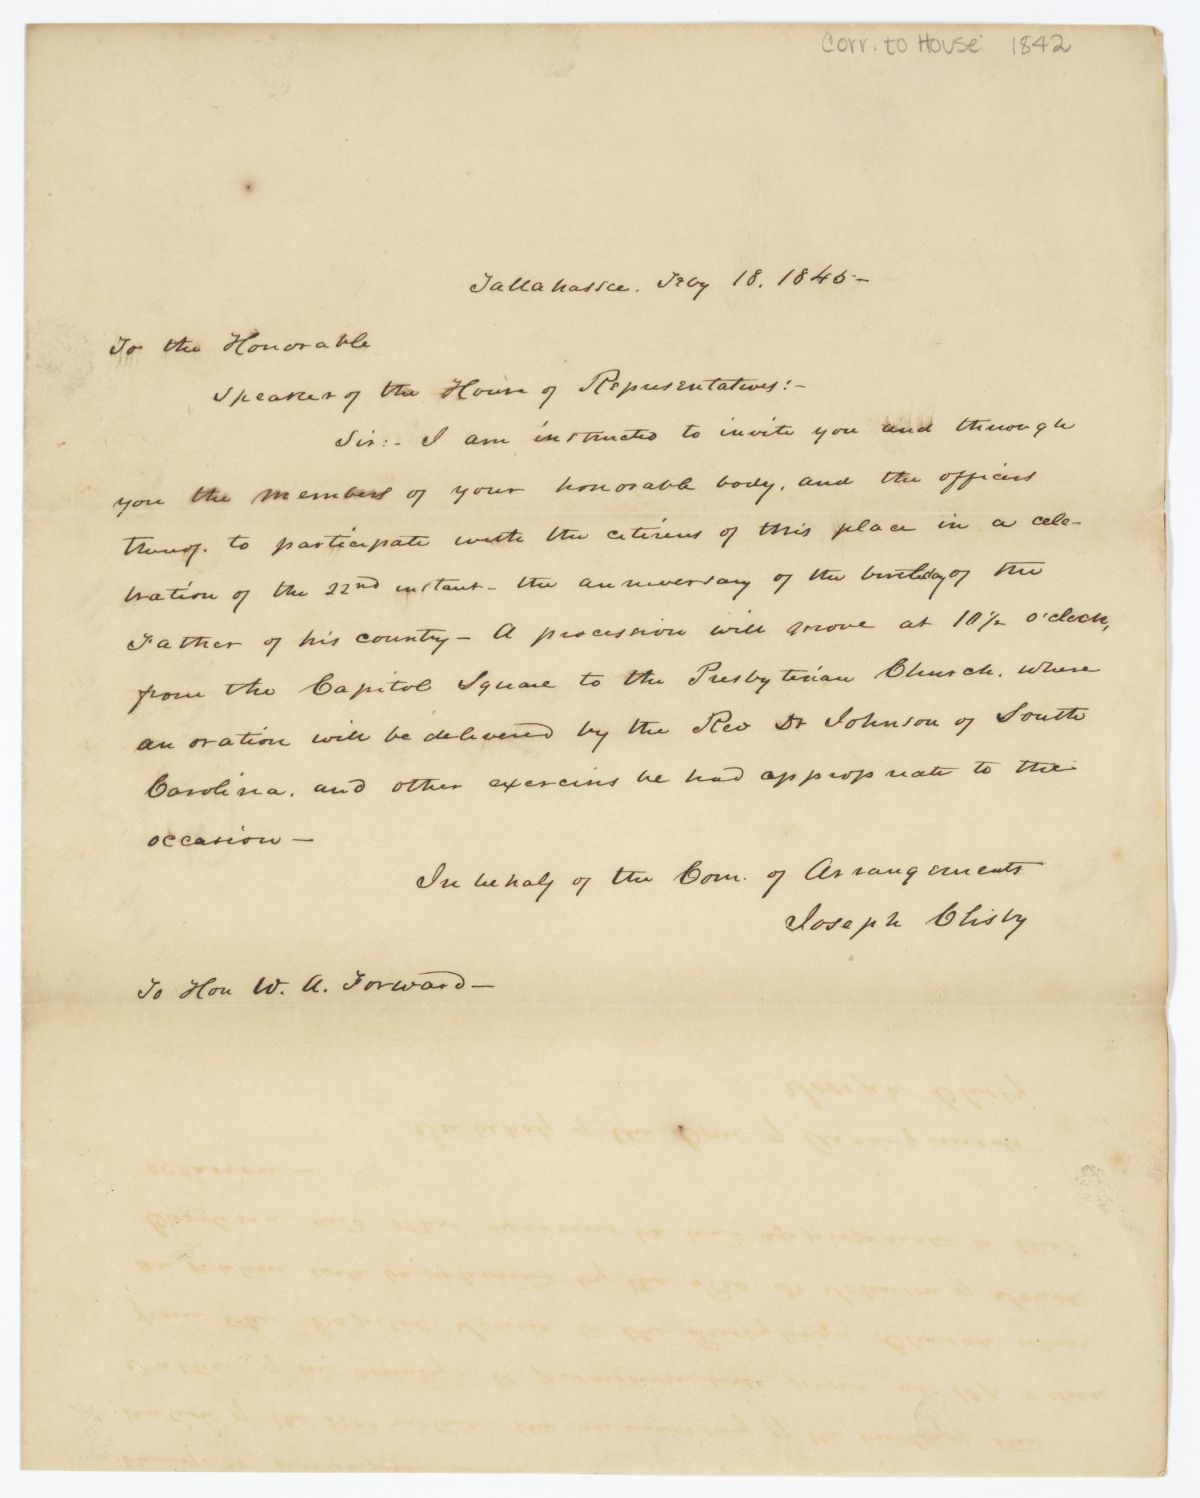 Corr. to House 1842
Tallahassee. Feby 18. 1845-
To the Honorable
Speaker of the House of Representatives:-
Sir:- I am instructed to invite you and through
you the members of your honorable body, and the officers
thereof. to participate with the citizens of this place in a cele-
bration of the 22nd instant- the anniversary of the birthday of the
Father of his country- A procession will move at 10½ o'clock,
from the Capitol Square to the Presbyterian Church. where
an oration will be delivered by the Rev Dr Johnson of South
Carolina. and other exercises be had appropriate to the
occasion-
In behalf of the Com. of Arrangements
Joseph Clisby
To Hon W. A. Forward-